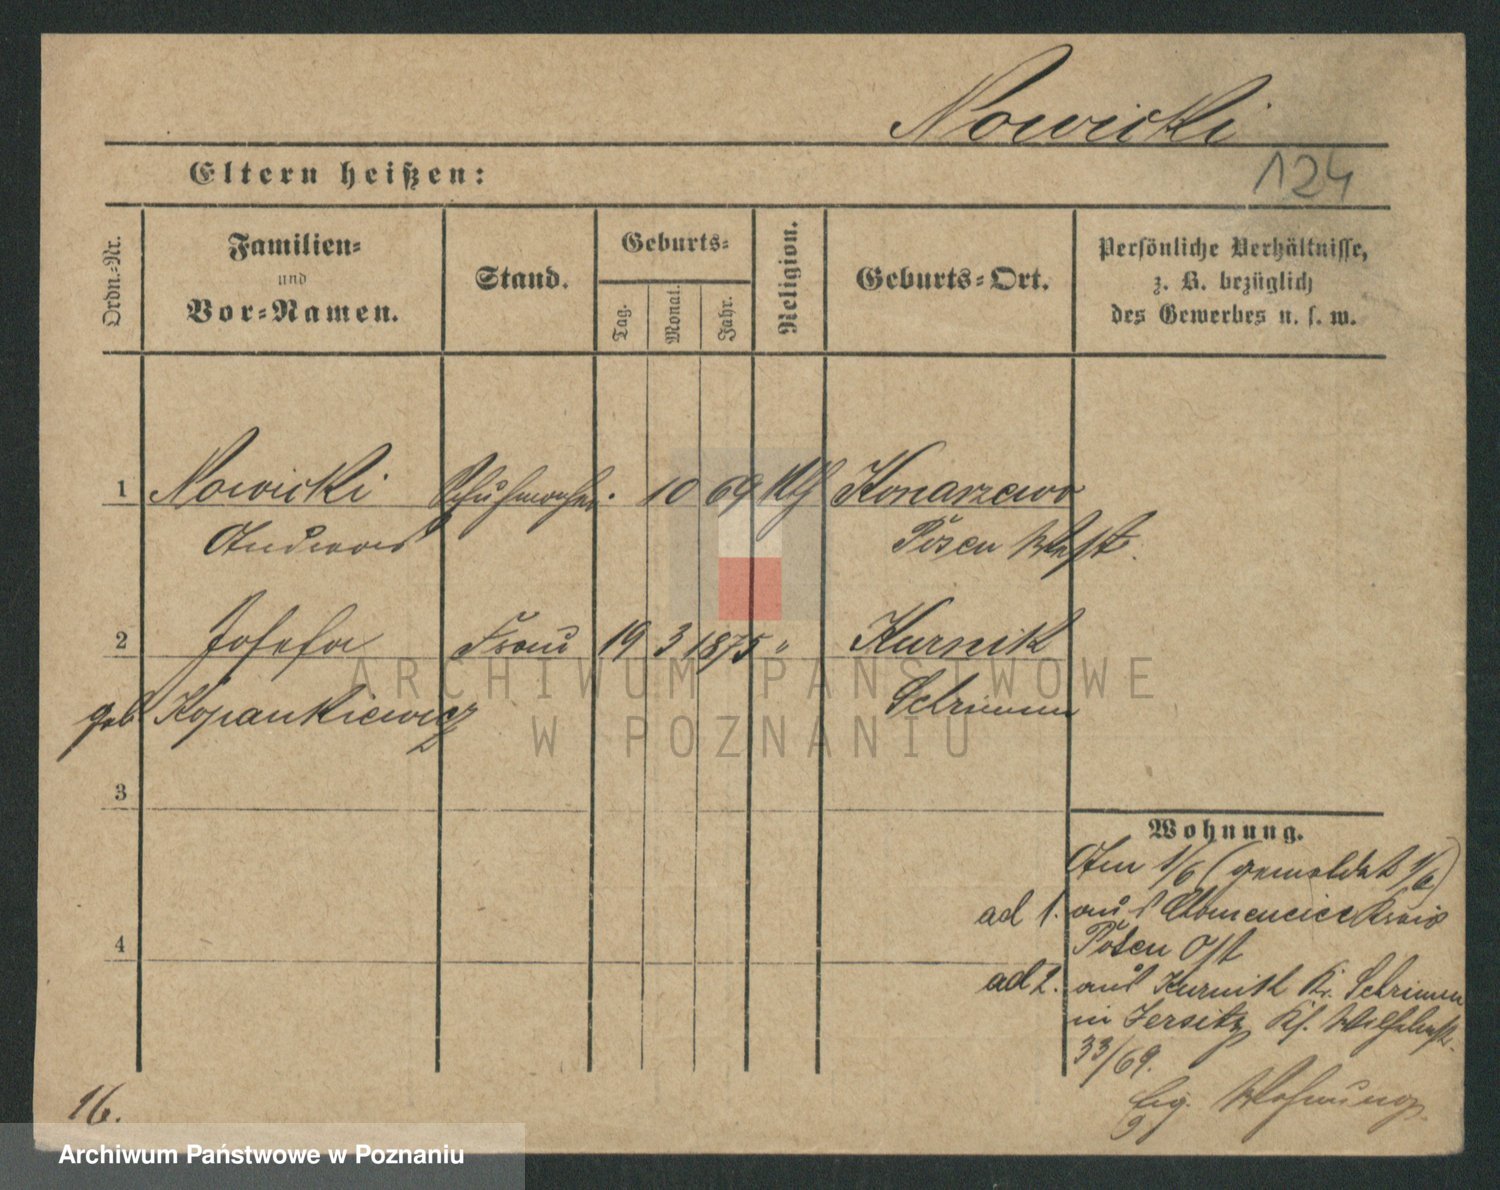 Nowicki
Eltern heißen:
124
Ordn.-Nr.
Familien-
und
Vor-Namen.
Stand.
Geburts-
Tag.
Monat.
Jahr.
Religion.
Geburts-Ort.
Persönliche Verhältnisse,
z. B. bezüglich
des Gewerbes u. s. w.
1 Nowicki Schuhmacher. 10 69 kth Konarzewo
Andreas Posen West.
2 Josefa Frau 19 3 1875 " Kurnik
geb Kopankiewicz Schrimm
3
Wohnung.
Am 1/6 (gemeldet 1/6)
ad 1. aus Kreis
4 Posen Ost
ad 2. aus Kurnik Kr. Schrimm
in Jersitz Kl.
33/69.
Wohnung.
16.
ARCHIWUM PAŃSTWOWE
W POZNANIU
Archiwum Państwowe w Poznaniu